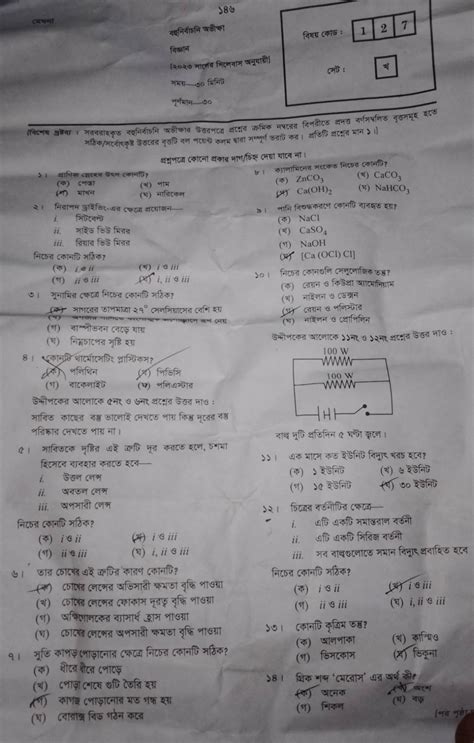 ১৪৬
বহুনির্বাচনি অভীক্ষা
বিজ্ঞান
[২০২৩ সালের সিলেবাস অনুযায়ী]
সময়—৩০ মিনিট
পূর্ণমান—৩০
বিষয় কোড : 1 2 7
সেট : খ
[বিশেষ দ্রষ্টব্য : সরবরাহকৃত বহুনির্বাচনি অভীক্ষার উত্তরপত্রে প্রশ্নের ক্রমিক নম্বরের বিপরীতে প্রদত্ত বর্ণসম্বলিত বৃত্তসমূহ হতে
সঠিক/সর্বোৎকৃষ্ট উত্তরের বৃত্তটি বল পয়েন্ট কলম দ্বারা সম্পূর্ণ ভরাট কর। প্রতিটি প্রশ্নের মান ১।]
প্রশ্নপত্রে কোনো প্রকার দাগ/চিহ্ন দেয়া যাবে না।
১। প্রাণিজ স্নেহের উৎস কোনটি?
(ক) পেস্তা (খ) পাম
(গ) মাখন (ঘ) নারিকেল
২। নিরাপদ ড্রাইভিং-এর ক্ষেত্রে প্রয়োজন—
i. সিটবেল্ট
ii. সাইড ভিউ মিরর
iii. রিয়ার ভিউ মিরর
নিচের কোনটি সঠিক?
(ক) i ও ii (খ) i ও iii
(গ) ii ও iii (ঘ) i, ii ও iii
৩। সুনামির ক্ষেত্রে নিচের কোনটি সঠিক?
(ক) সাগরের তাপমাত্রা ২৭° সেলসিয়াসের বেশি হয়
(গ) বাষ্পীভবন বেড়ে যায়
(ঘ) নিম্নচাপের সৃষ্টি হয়
৪। কোনটি থার্মোসেটিং প্লাস্টিকস?
(ক) পলিথিন (খ) পিভিসি
(গ) বাকেলাইট (ঘ) পলিএস্টার
উদ্দীপকের আলোকে ৫নং ও ৬নং প্রশ্নের উত্তর দাও :
সাবিত কাছের বস্তু ভালোই দেখতে পায় কিন্তু দূরের বস্তু
পরিষ্কার দেখতে পায় না।
৫। সাবিতকে দৃষ্টির এই ত্রুটি দূর করতে হলে, চশমা
হিসেবে ব্যবহার করতে হবে—
i. উত্তল লেন্স
ii. অবতল লেন্স
iii. অপসারী লেন্স
নিচের কোনটি সঠিক?
(ক) i ও ii (খ) i ও iii
(গ) ii ও iii (ঘ) i, ii ও iii
৬। তার চোখের এই ত্রুটির কারণ কোনটি?
(ক) চোখের লেন্সের অভিসারী ক্ষমতা বৃদ্ধি পাওয়া
(খ) চোখের লেন্সের ফোকাস দূরত্ব বৃদ্ধি পাওয়া
(গ) অক্ষিগোলকের ব্যাসার্ধ হ্রাস পাওয়া
(ঘ) চোখের লেন্সের অপসারী ক্ষমতা বৃদ্ধি পাওয়া
৭। সুতি কাপড় পোড়ানোর ক্ষেত্রে নিচের কোনটি সঠিক?
(ক) ধীরে ধীরে পোড়ে
(খ) পোড়া শেষে গুটি তৈরি হয়
(গ) কাগজ পোড়ানোর মতো গন্ধ হয়
(ঘ) বোরাক্স বিড গঠন করে
৮। ক্যালামিনের সংকেত নিচের কোনটি?
(ক) ZnCO₃ (খ) CaCO₃
(গ) Ca(OH)₂ (ঘ) NaHCO₃
৯। পানি বিশুদ্ধকরণে কোনটি ব্যবহৃত হয়?
(ক) NaCl
(খ) CaSO₄
(গ) NaOH
(ঘ) [Ca (OCl) Cl]
১০। নিচের কোনগুলি সেলুলোজিক তন্তু?
(ক) রেয়ন ও কিউপ্রা অ্যামোনিয়াম
(খ) নাইলন ও ডেক্সন
(গ) রেয়ন ও পলিস্টার
(ঘ) নাইলন ও প্রোপিলিন
উদ্দীপকের আলোকে ১১নং ও ১২নং প্রশ্নের উত্তর দাও :
100 W
100 W
বাল্ব দুটি প্রতিদিন ৫ ঘণ্টা জ্বলে।
১১। এক মাসে কত ইউনিট বিদ্যুৎ খরচ হবে?
(ক) ১ ইউনিট (খ) ৬ ইউনিট
(গ) ১৫ ইউনিট (ঘ) ৩০ ইউনিট
১২। চিত্রের বর্তনীটির ক্ষেত্রে—
i. এটি একটি সমান্তরাল বর্তনী
ii. এটি একটি সিরিজ বর্তনী
iii. সব বাল্বগুলোতে সমান বিদ্যুৎ প্রবাহিত হবে
নিচের কোনটি সঠিক?
(ক) i ও ii (খ) i ও iii
(গ) ii ও iii (ঘ) i, ii ও iii
১৩। কোনটি কৃত্রিম তন্তু?
(ক) আলপাকা (খ)
(গ) ভিসকোস (ঘ) ভিকুনা
১৪। গ্রিক শব্দ 'মেরোস' এর অর্থ কী?
(ক) অনেক (খ) অংশ
(গ) শিকল (ঘ) বড়